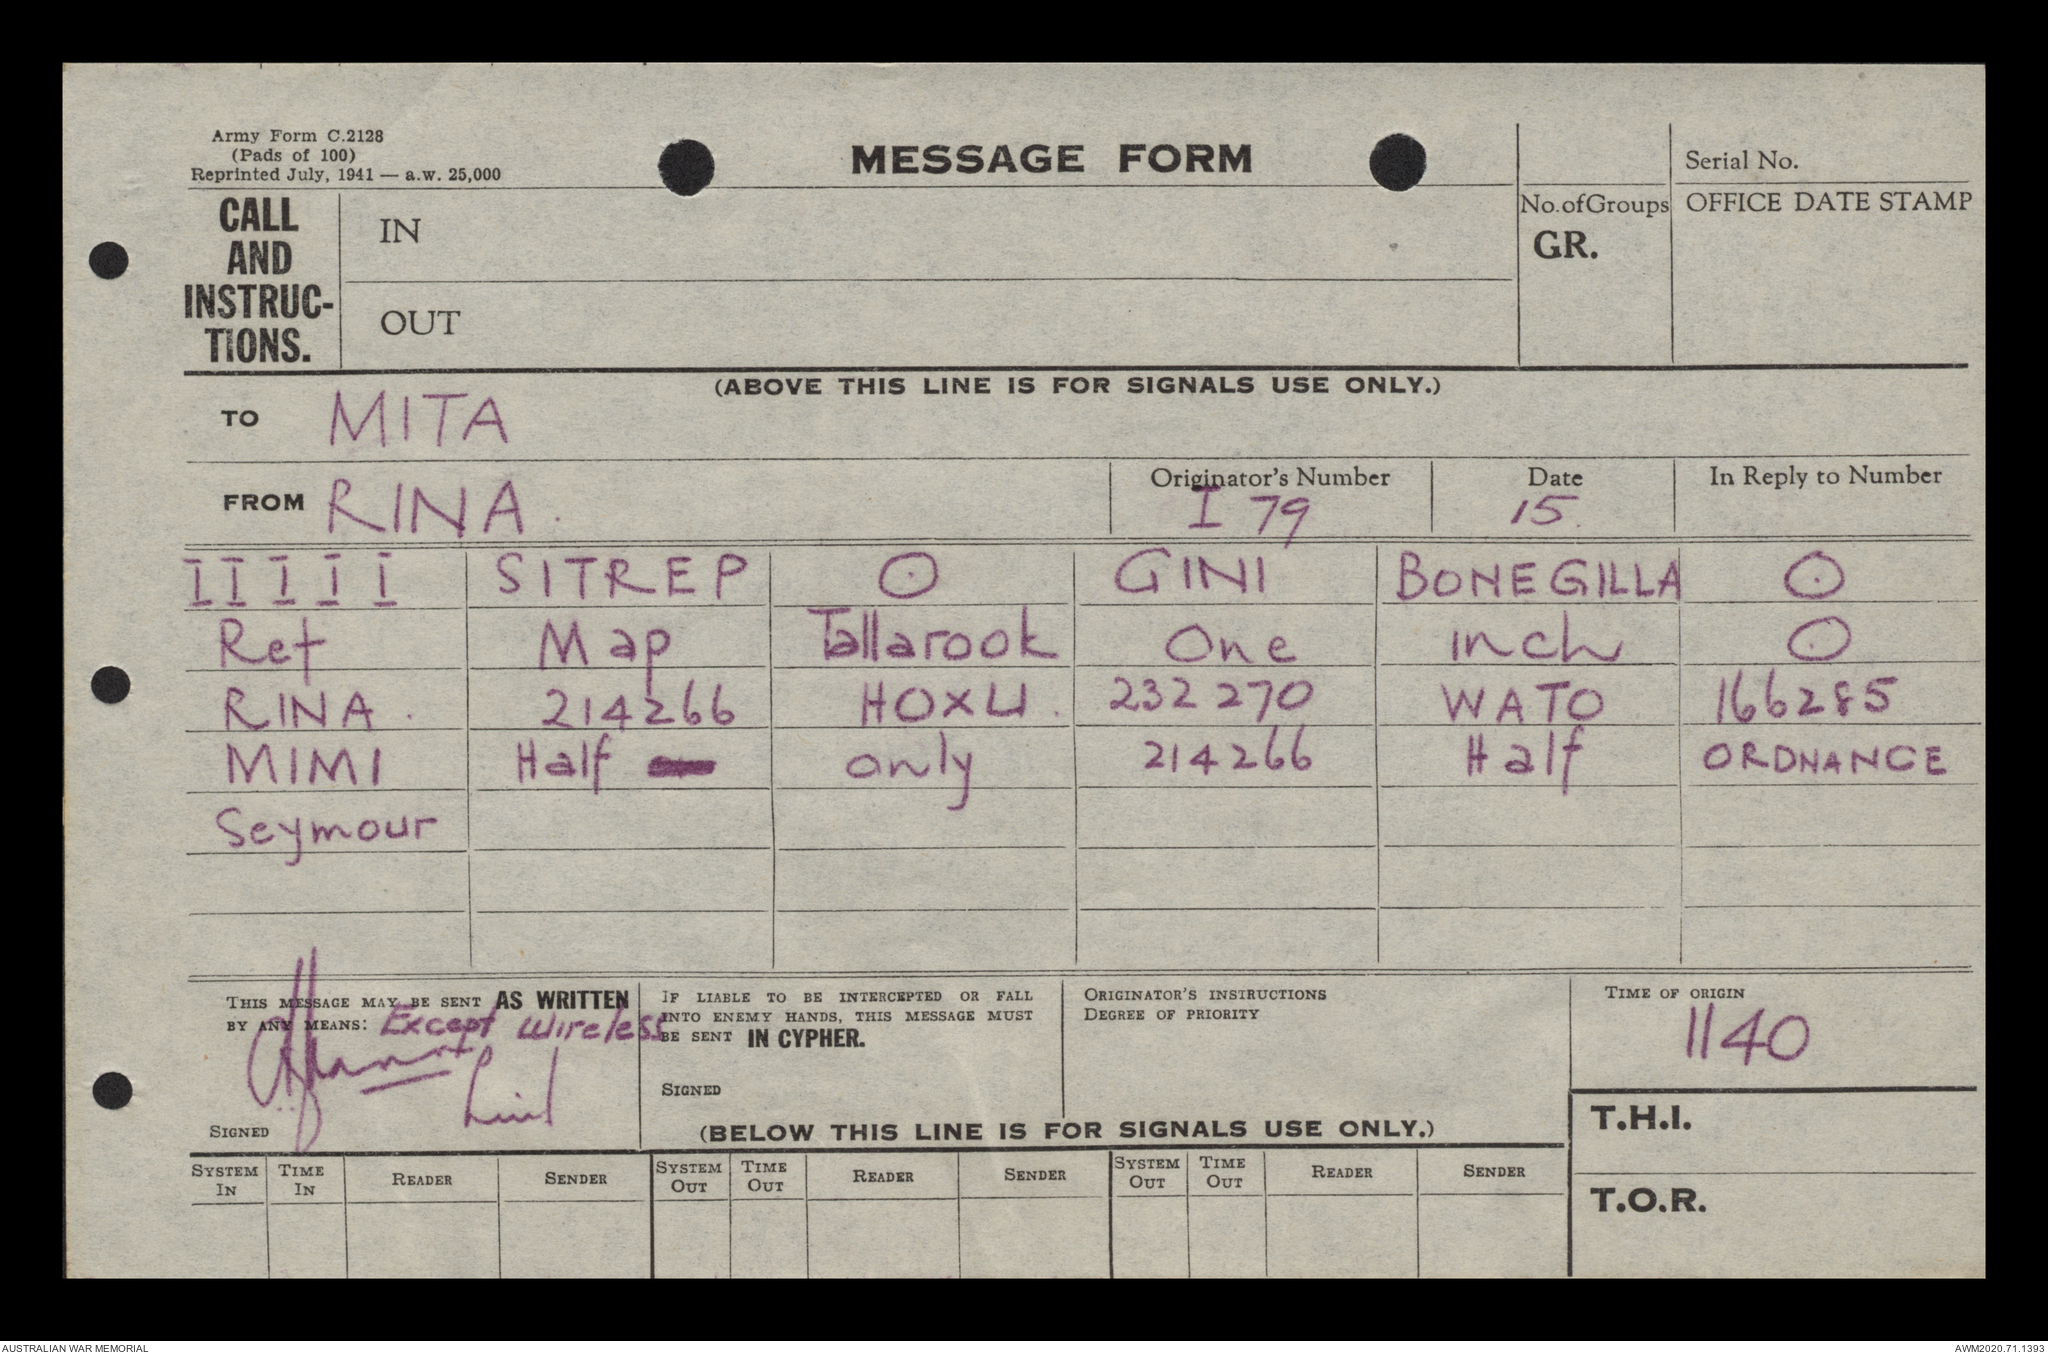 Army Form C.2128
(Pads of 100)
Reprinted July, 1941 — a.w. 25,000
MESSAGE FORM
Serial No.
CALL
AND
INSTRUC-
TIONS.
IN
OUT
No. of Groups
GR.
OFFICE DATE STAMP
(ABOVE THIS LINE IS FOR SIGNALS USE ONLY.)
TO MITA
FROM RINA.
Originator's Number
I 79
Date
15.
In Reply to Number
I I I I I SITREP ⊙ GINI BONEGILLA ⊙
Ref Map Tallarook One inch ⊙
RINA. 214266 HOXU. 232270 WATO 166285
MIMI Half only 214266 Half ORDNANCE
Seymour
THIS MESSAGE MAY BE SENT AS WRITTEN
BY ANY MEANS: Except wireless
SIGNED
IF LIABLE TO BE INTERCEPTED OR FALL
INTO ENEMY HANDS, THIS MESSAGE MUST
BE SENT IN CYPHER.
SIGNED
ORIGINATOR'S INSTRUCTIONS
DEGREE OF PRIORITY
TIME OF ORIGIN
1140
(BELOW THIS LINE IS FOR SIGNALS USE ONLY.)
T.H.I.
T.O.R.
SYSTEM IN TIME IN READER SENDER SYSTEM OUT TIME OUT READER SENDER SYSTEM OUT TIME OUT READER SENDER
AUSTRALIAN WAR MEMORIAL
AWM2020.71.1393